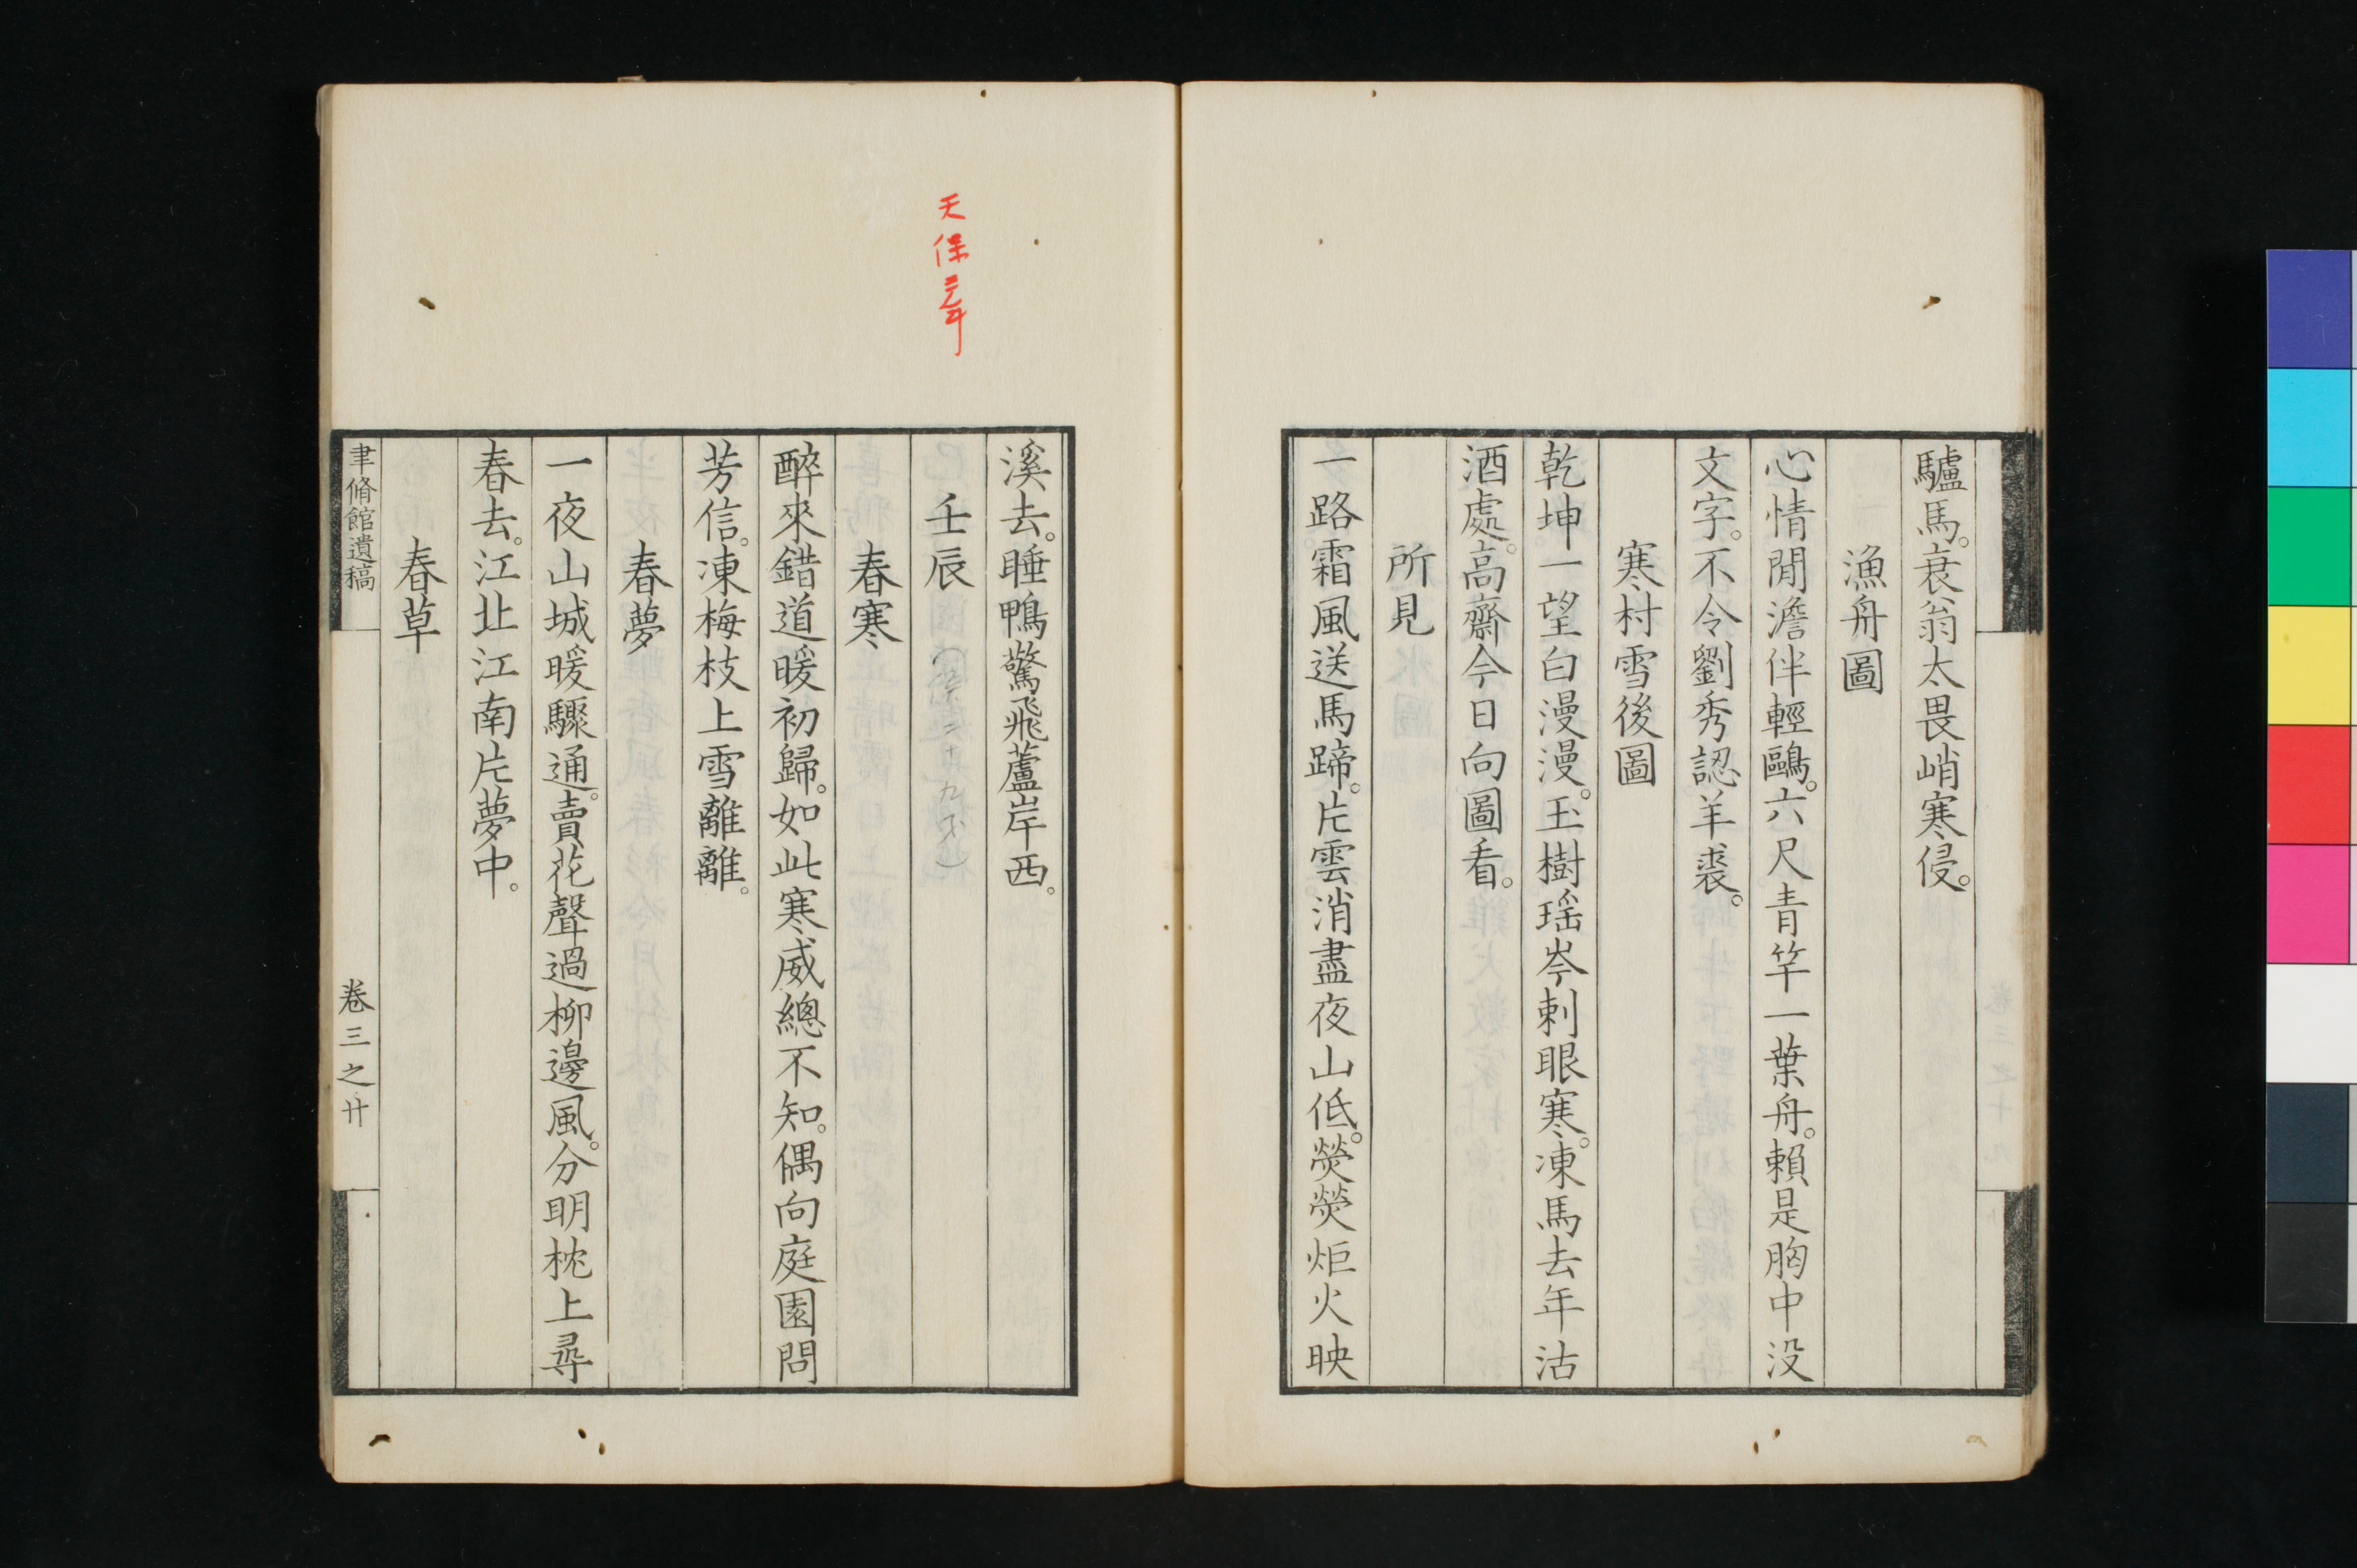 驢馬。衰翁太畏峭寒侵。
漁舟圖
心情閒澹伴輕鷗。六尺青竿一葉舟。賴是胸中没
文字。不令劉秀認羊裘。
寒村雪後圖
乾坤一望白漫漫。玉樹瑶岑刺眼寒。凍馬去年沽
酒處。高齋今日向圖看。
所見
一路霜風送馬蹄。片雲消盡夜山低。熒熒炬火映
溪去。睡鴨驚飛蘆岸西。
天保三年
壬辰
春寒
醉來錯道暖初歸。如此寒威總不知。偶向庭園問
芳信。凍梅枝上雪離離。
春夢
一夜山城暖驟通。賣花聲過柳邊風。分明枕上尋
春去。江北江南片夢中。
春草
聿脩館遺稿
卷三之廿